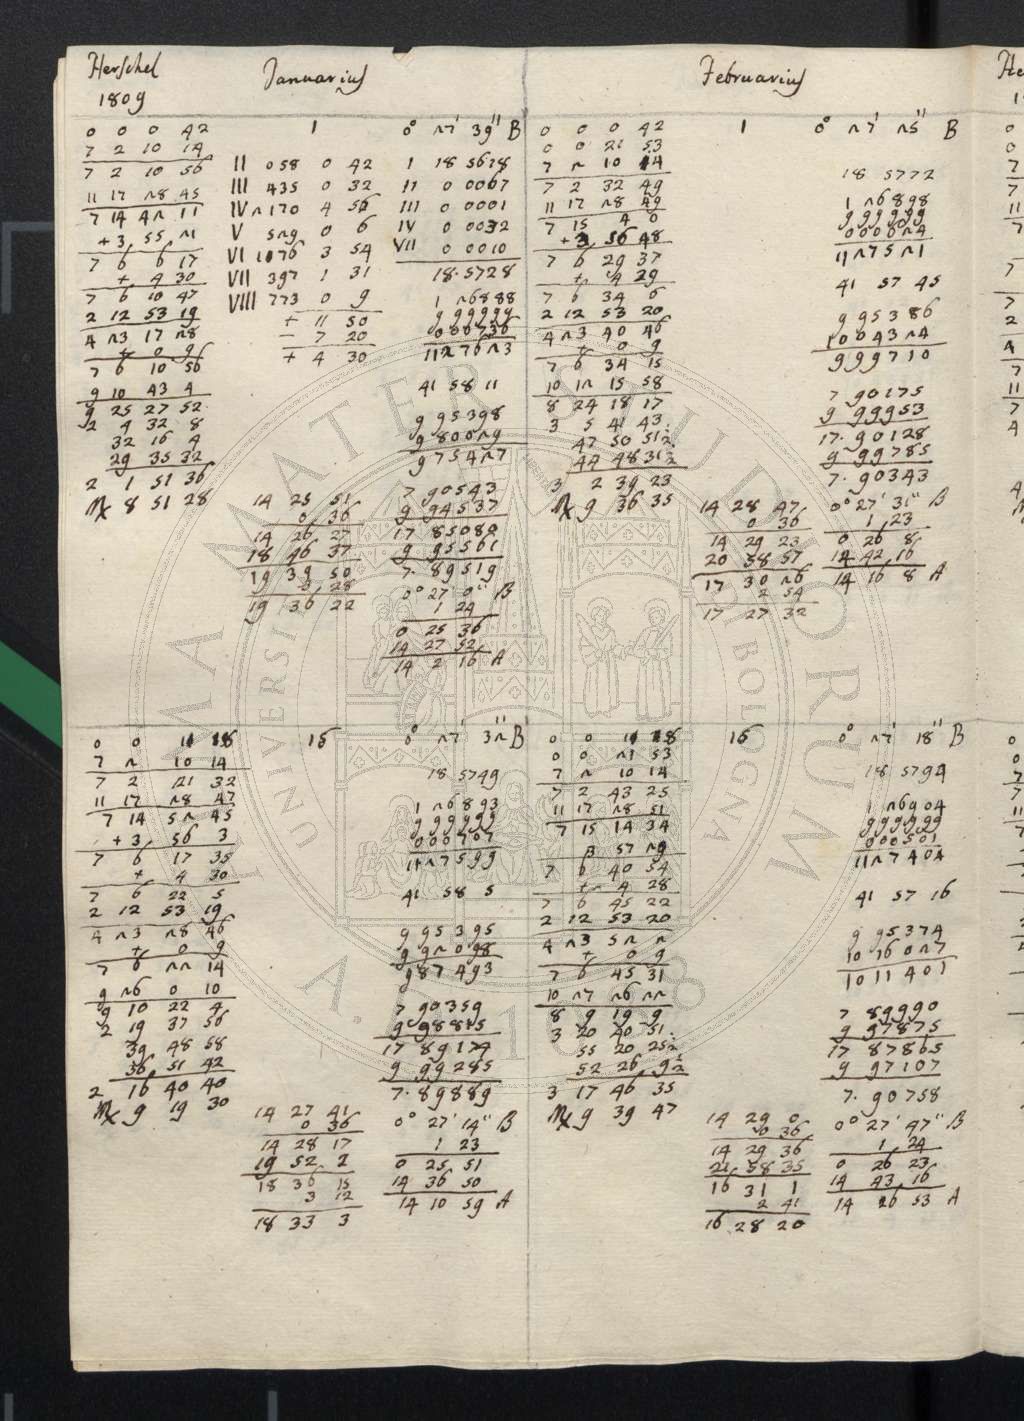 Herschel
1809
Januarius
Februarius
1
0° 27' 39" B
0 0 0 42
7 2 10 14
7 2 10 56
11 17 28 45
7 14 42 11
+ 3 55 21
7 6 6 17
+ 4 30
7 6 10 47
2 12 53 19
4 23 17 28
+ 0 9
7 6 10 56
9 10 43 4
9 25 27 52
2 4 32 8
32 16 4
29 35 32
2 1 51 36
♏ 8 51 28
II 058 0 42
III 435 0 32
IV 2170 4 56
V 529 0 6
VI 1076 3 54
VII 397 1 31
VIII 773 0 9
+ 11 50
− 7 20
+ 4 30
I 18 5618
II 0 0067
III 0 0001
IV 0 0032
VII 0 0010
18.5728
1 26888
9 99999
000736
1127623
41 58 11
9 95398
9 80029
9 75427
7 90543
9 94537
17 85080
9 95561
7. 89519
0° 27' 0" B
1 24
0 25 36
14 27 52
14 2 16 A
14 25 51
0 36
14 26 27
18 46 37
19 39 50
0 28
19 36 22
1
0° 27' 25" B
0 0 0 42
0 0 21 53
7 2 10 14
7 2 32 49
11 17 28 49
7 15 4 0
+ 3 56 48
7 6 29 37
+ 4 29
7 6 34 6
2 12 53 20
4 23 40 46
+ 0 9
7 6 34 15
10 12 15 58
8 24 18 17
3 5 41 43
47 50 51½
44 48 31½
3 2 39 23
♏ 9 36 35
18 5772
1 26898
9 99999
000624
1127521
41 57 45
9 95386
10 04324
9 99710
7 90175
9 99953
17. 90128
9 99785
7. 90343
0° 27' 31" B
1 23
0 26 8
14 42 16
14 16 8 A
14 28 47
0 36
14 29 23
20 58 57
17 30 26
2 54
17 27 32
16
0° 27' 32" B
0 0 11 18
7 2 10 14
7 2 21 32
11 17 28 47
7 14 52 45
+ 3 56 3
7 6 17 35
+ 4 30
7 6 22 5
2 12 53 19
4 23 28 46
+ 0 9
7 6 22 14
9 26 0 10
9 10 22 4
2 19 37 56
39 48 58
36 51 42
2 16 40 40
♏ 9 19 30
18 5749
1 26893
9 99999
000707
1127599
41 58 5
9 95395
9 92098
9 87493
7 90359
9 98815
17 89174
9 99285
7. 89889
0° 27' 14" B
1 23
0 25 51
14 36 50
14 10 59 A
14 27 41
0 36
14 28 17
19 52 2
18 36 15
3 12
18 33 3
16
0° 27' 18" B
0 0 11 18
0 0 21 53
7 2 10 14
7 2 43 25
11 17 28 51
7 15 14 34
3 57 29
7 6 40 54
+ 4 28
7 6 45 22
2 12 53 20
4 23 52 2
+ 0 9
7 6 45 31
10 27 26 22
8 9 19 9
3 20 40 51
55 20 25½
52 26 9½
3 17 46 35
♏ 9 39 47
18 5794
1 26904
9 99999
000501
1127404
41 57 16
9 95374
10 16027
10 11401
7 89990
9 97875
17 87865
9 97107
7. 90758
0° 27' 47" B
1 24
0 26 23
14 43 16
14 26 53 A
14 29 0
0 36
14 29 36
21 58 35
16 31 1
2 41
16 28 20